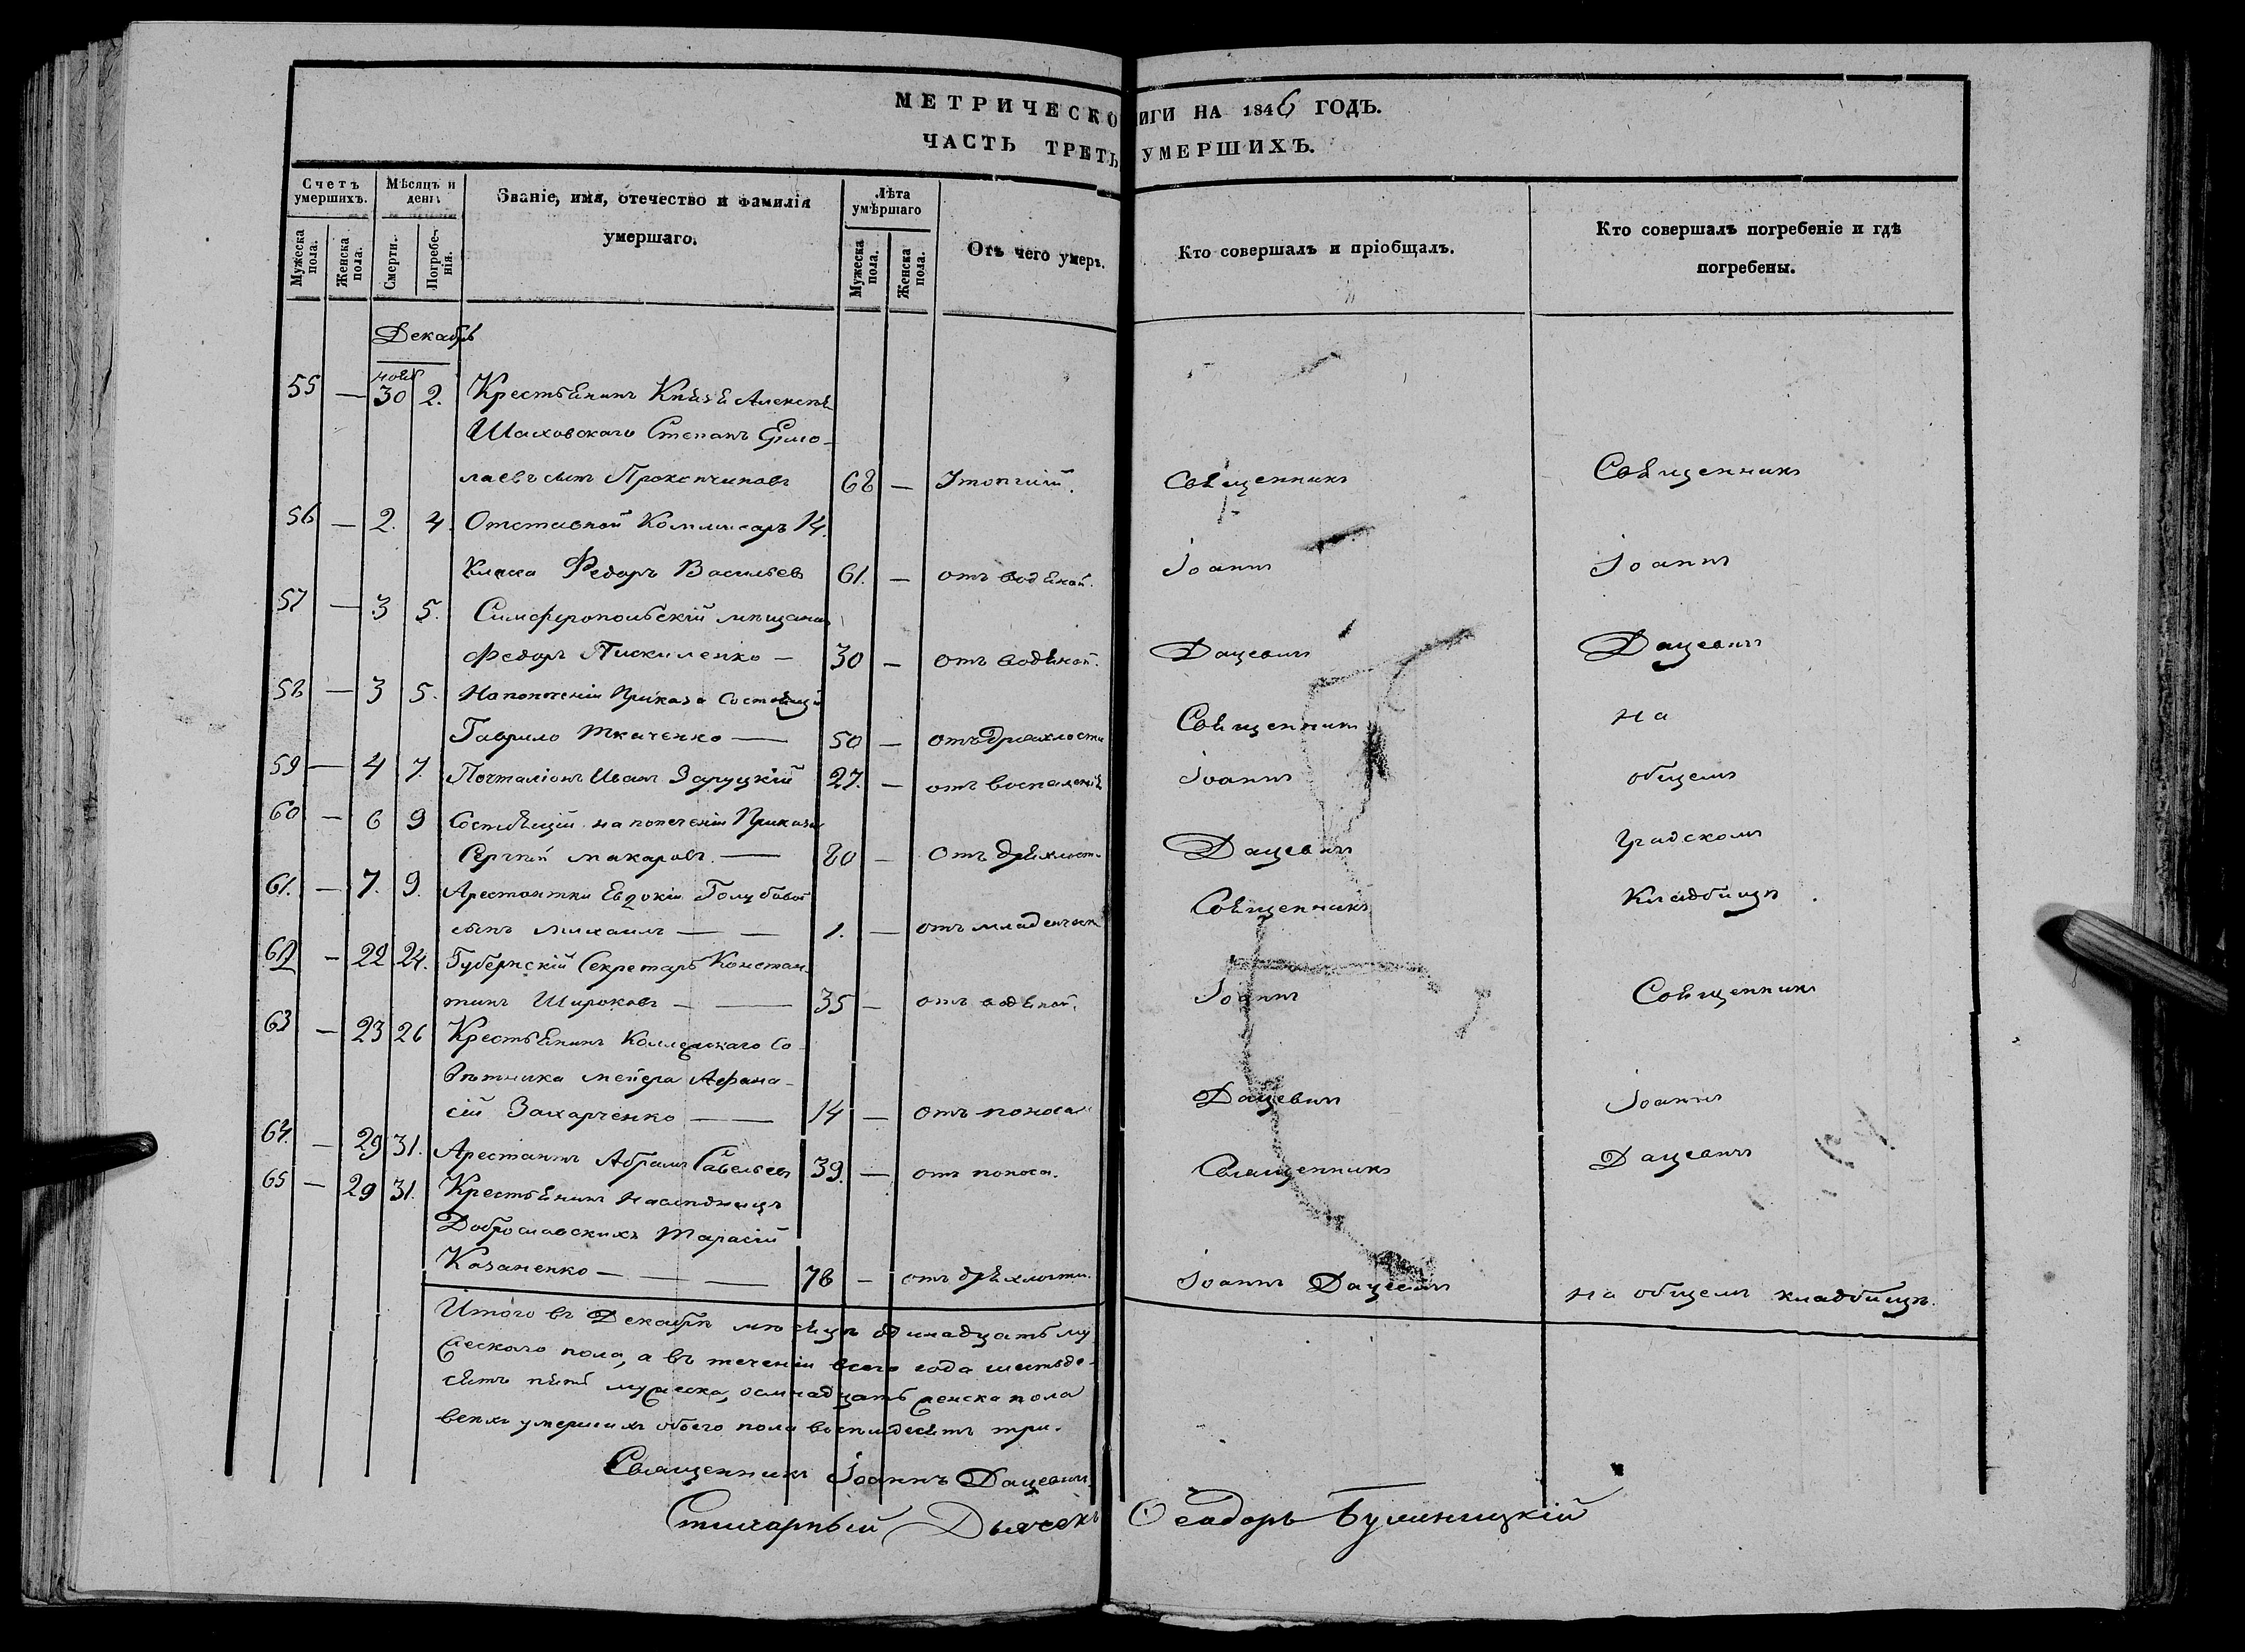 МЕТРИЧЕСКО ИГИ НА 1846 ГОДЪ.
ЧАСТЬ ТРЕТЬ УМЕРШИХЪ.
Счетъ умершихъ.
Мѣсяцъ и день
Званіе, имя, отечество и фамилія умершаго.
Лѣта умѣршаго
Отъ чего умеръ.
Кто совершалъ и пріобщалъ.
Кто совершалъ погребеніе и гдѣ погребены.
Мужеска пола.
Женска пола.
Смерти.
Погребенія.
Мужеска пола.
Женска пола.
Декабрь
нояб
55 — 30 2. Крестьянинъ Князя Алексѣя
Шаховскаго Степанъ Ермо-
лаевъ сынъ 68 — Утопшій. Священникъ Священникъ
56 — 2. 4. Отставной Коммисаръ 14.
Класа Федоръ Васильевъ 61. — отъ водяной. Іоаннъ Іоаннъ
57 — 3 5. Симферопольскій мѣщанинъ
Федоръ Пискиленко — 30 — отъ водяной. Дацевичъ Дацевичъ
58 — 3 5. На попеченіи Приказа состоящій
Гаврило Ткаченко — 50 — отъ дряхлости Священникъ на
59 — 4 7. Почталіонъ Иванъ Заруцкій 27. — отъ воспаленія Іоаннъ общемъ
60 — 6 9 Состоящій на попеченіи Приказа
Сергѣй Макаровъ. — 80 — отъ дряхлост. Дацевичъ градскомъ
61. — 7. 9. Арестантки Евдокіи Голубовой
сынъ Михаилъ — — 1. — отъ младенческ Священникъ Кладбищѣ.
62 — 22 24. Губернскій Секретарь Констан-
тинъ Широковъ — — 35 — отъ водяной. Іоаннъ Священникъ
63 — 23 26 Крестьянинъ Коллежскаго Со-
вѣтника Мейера Афана-
сій Захарченко — — 14 — отъ поноса Дацевичъ Іоаннъ
64. — 29 31. Арестантъ Абрамъ Савельевъ 39. — отъ поноса. Священникъ Дацевичъ
65 — 29 31. Крестьянинъ Наслѣдницъ
Доброславскихъ Тарасій
Казаненко — — — 78 — отъ дряхлости. Іоаннъ Дацевичъ на общемъ кладбищѣ.
Итого въ Декабрѣ мѣсяцѣ одинадцать му
жескаго пола, а въ теченіи всего года шестьде-
сятъ пять мужеска, осмнадцать женска пола
всѣхъ умершихъ обоего пола восмьдесятъ три.
Священникъ Іоаннъ Дацевичъ.
Стихарный Дьячекъ Феодоръ